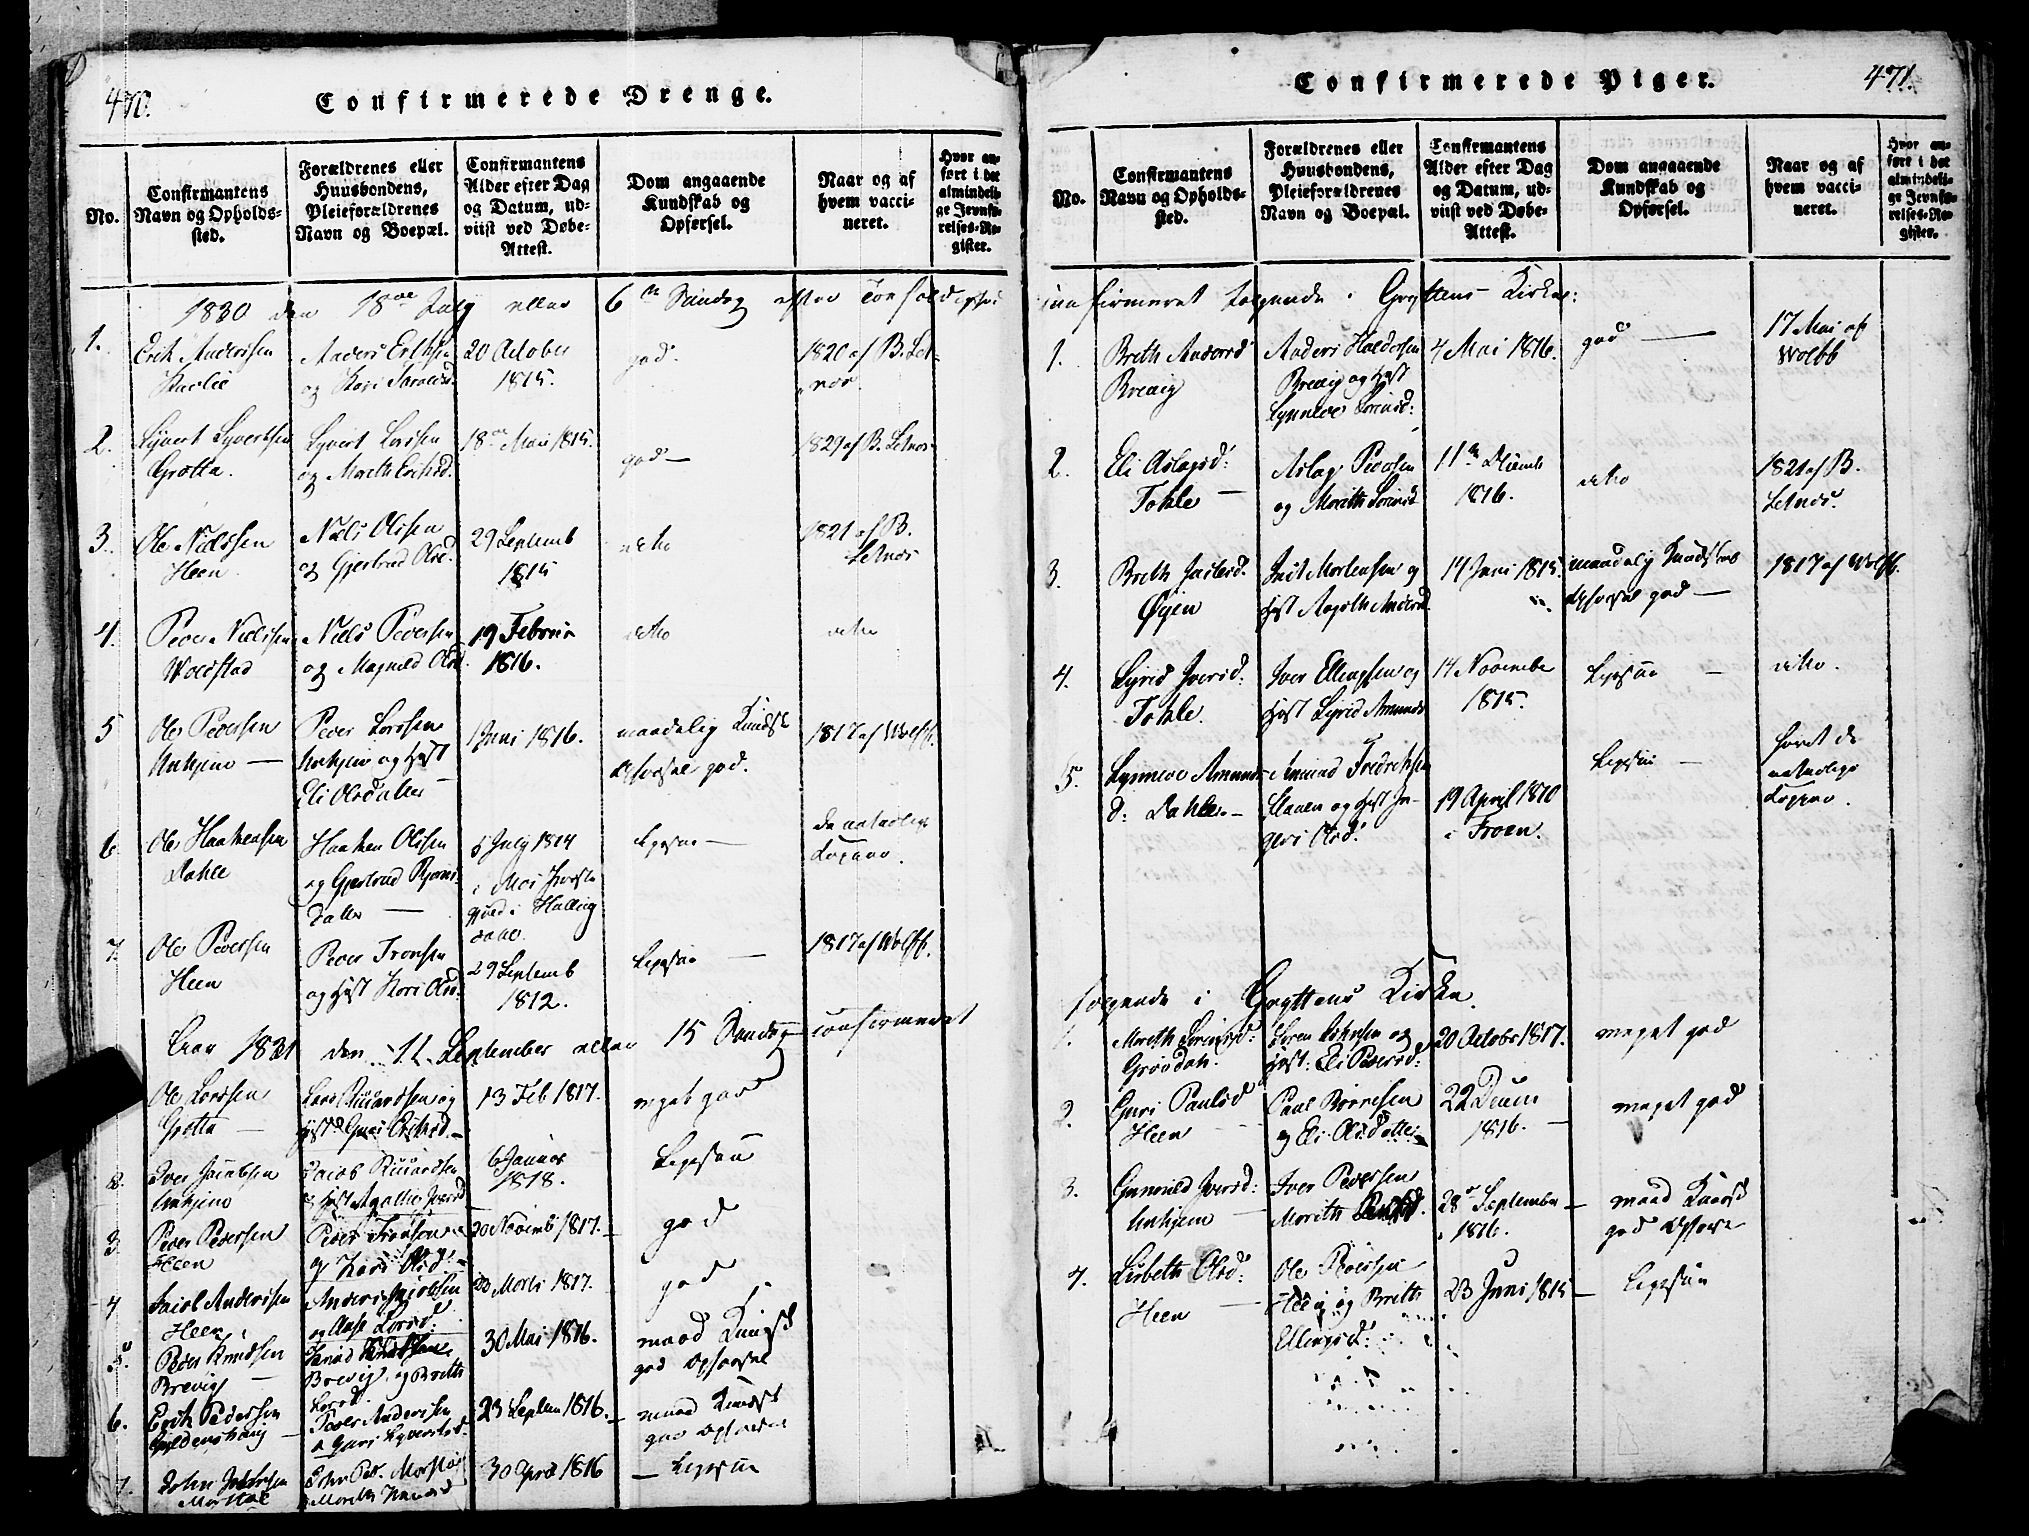 470.
Confirmerede Drenge.
No.
Confirmantens
Navn og Opholds-
sted.
Forældrenes eller
Huusbondens,
Pleieforældrenes
Navn og Boepæl.
Confirmantens
Alder efter Dag
og Datum, ud-
viist ved Døbe-
Attest.
Dom angaaende
Kundskab og
Opførsel.
Naar og af
hvem vacci-
neret.
Hvor an-
ført i det
almindeli-
ge Jevnfø-
relses-Re-
gister.
1830 den 18de July eller 6te Søndag efter
1.
Erik Andersen
Anders Eriksen
og Kari
20 October
1815.
god.
1820 af B. Set-
nes
2.
Syvert Syvertsen
Grøtta.
Syvert Larsen
og Marith Erichsd.
18de Mai 1815.
god
1829 af B. Setnes
3.
Ole Nielsen
Heen
Niels Olsen
og Gjertrud Olsd.
29 Septemb
1815
ditto
1821 af B.
Setnes
4.
Peder Nielsen
Woldstad
Niels Pedersen
og Magnild Olsd.
19 Februar
1816.
ditto
ditto
5
Ole Pedersen
Unhjem
Peder Larsen
Unhjem og Hust
Eli Olsdatter
1 Juni 1816.
maadelig Kundsk
Opførsel god.
1817 af Wolff.
6.
Ole Haakensen
Dahle
Haaken Olsen
og Gjertrud Bjørns-
datter
5 July 1814
i Næs Præste
gjeld i Halling
dalen
Ligesaa
de naturlige
Kopper.
7.
Ole Pedersen
Heen
Peder Tronsen
og Hust Kari Olsd.
29 Septemb
1812.
Ligesaa
1817 af Wolff.
Aar 1831 den 11 September eller 15 Søndag confirmeret
Ole Larsen
Grøtta
13 Feb 1817.
meget god
2.
Iver Jacobsen
Unhjem
Jacob
6 Januar
1818.
Ligesaa
3
Peder Pedersen
Heen
Peder Tronsen
og Kari Olsd.
20 Novemb 1817.
god
4
Jacob Andersen
Heen
Anders Jacobsen
og Anne Larsd.
Marts 1817.
god
5
Peder Knudsen
Brevig
Knud Knudsen
Brevig og Brethe
Larsd.
30 Mai 1816.
maad Kundsk
god Opførsel
6.
Erik Pedersen
Gyldenskoug
Peder Andersen
& Guri Syvertsd.
23 Septem 1816.
maad Kundsk
god Opførsel
7.
John
30 April 1816
Ligesaa
471.
Confirmerede Piger.
No.
Confirmantens
Navn og Opholds-
sted.
Forældrenes eller
Huusbondens,
Pleieforældrenes
Navn og Boepæl.
Confirmantens
Alder efter Dag
og Datum, ud-
viist ved Døbe-
Attest.
Dom angaaende
Kundskab og
Opførsel.
Naar og af
hvem vacci-
neret.
Hvor an-
ført i det
almindeli-
ge Jevnfø-
relses-Re-
gister.
confirmeret følgende i Gryttens Kirke:
1.
Breth Andersd
Brevig
Anders Haldorsen
Brevig og Hust
Synneve
4 Mai 1816.
god
17 Mai af
Wolff
2.
Eli Aslagsd:
Tokle
Aslag Pedersen
og Marith
11te Decemb
1816.
ditto
1821 af B.
Setnes.
3.
Breth
Øyen
Morten sen og
Hust
14 Juni 1815.
maadelig Kundskab
Opførsel god
1817 af Wolff.
4.
Syrid Iversd:
Tokle.
Iver Ellingsen og
Hust Syrid Amunds
14 November
1815.
Ligesaa
ditto.
5.
Synneve Amunds
d: Dahle.
Amund Fredriksen
og Hust In-
geri Olsd:
19 April 1810
i Froen.
Ligesaa
havt de
naturlige
Kopper.
følgende i Gryttens Kirke
1.
Gravdah.
Hust: Eli Pedersd:
20 Octobr 1817.
meget god
2.
Guri Paulsd
Heen
Paul
og Eli Olsdatter
22 Decem
1816.
meget god
3.
Gunnild Iversd:
Unhjem
Iver Pedersen
Marith
28de September
1816.
maad Kundsk
god Opførsel
4.
Lisbeth Olsd:
Heen
Ole
Heen og Brith
Ellingsd:
23 Juni 1815
Ligesaa